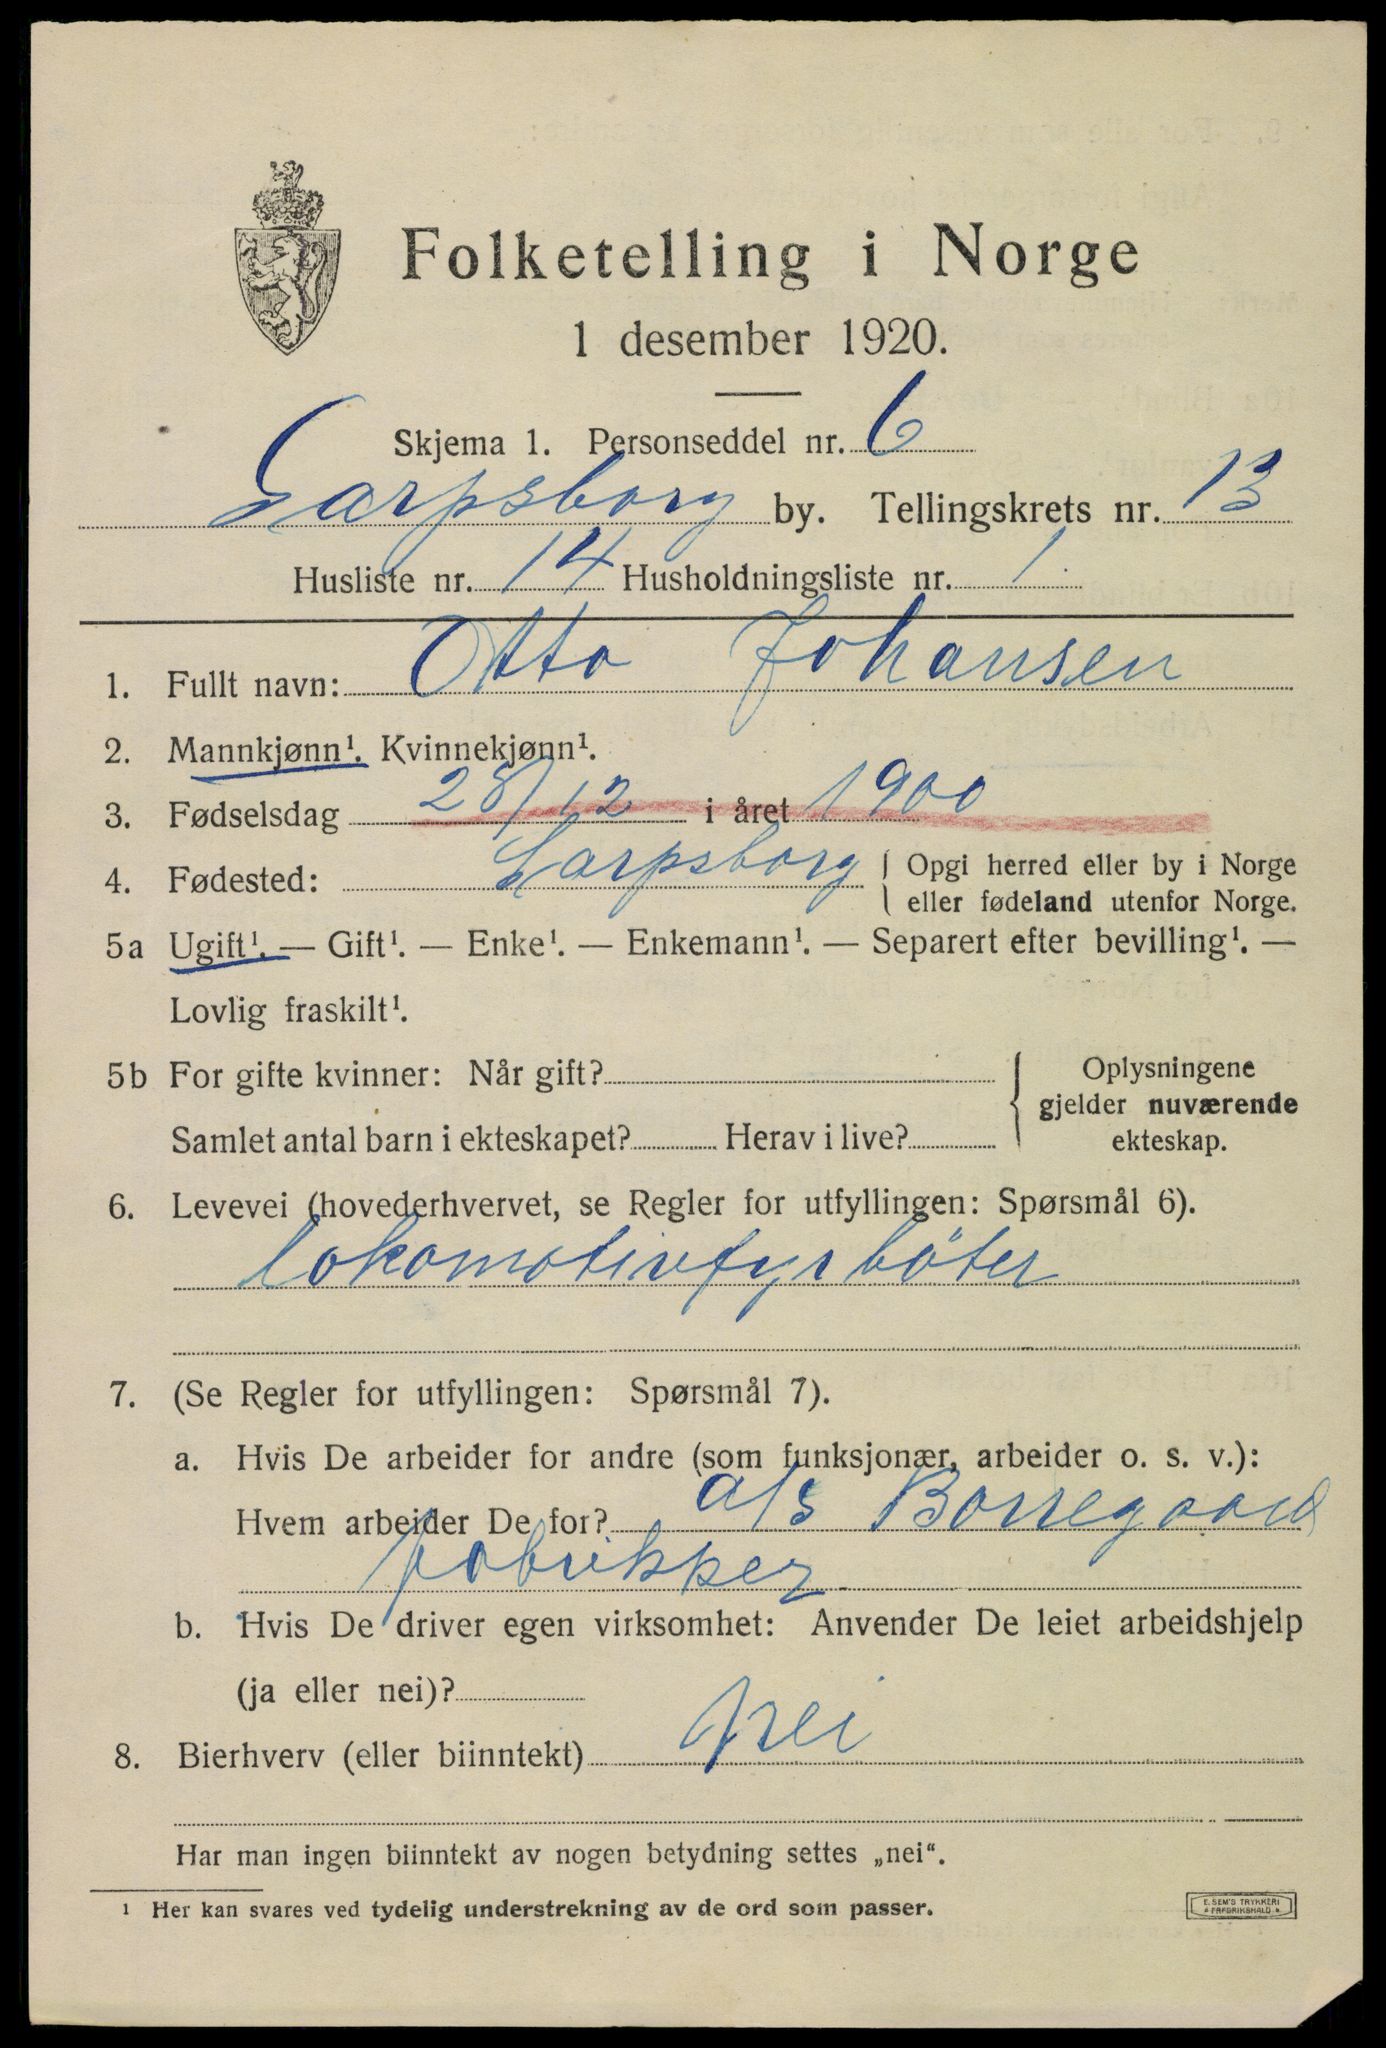 Folketelling i Norge
1 desember 1920.
Skjema 1. Personseddel nr. 6
Sarpsborg by. Tellingskrets nr. 13
Husliste nr. 14 Husholdningsliste nr. 1.
1. Fullt navn: Otto Johansen
2. Mannkjønn¹. Kvinnekjønn¹.
3. Fødselsdag 28/12 i året 1900
4. Fødested: Sarpsborg { Opgi herred eller by i Norge
eller fødeland utenfor Norge.
5a Ugift¹. — Gift¹. — Enke¹. — Enkemann¹. — Separert efter bevilling¹. —
Lovlig fraskilt¹.
5b For gifte kvinner: Når gift?
Samlet antal barn i ekteskapet? Herav i live?
Oplysningene
gjelder nuværende
ekteskap.
6. Levevei (hovederhvervet, se Regler for utfyllingen: Spørsmål 6).
lokomotivfyrböter
7. (Se Regler for utfyllingen: Spørsmål 7).
a. Hvis De arbeider for andre (som funksjonær, arbeider o. s. v.):
Hvem arbeider De for? a/s Borregaard
fabrikker
b. Hvis De driver egen virksomhet: Anvender De leiet arbeidshjelp
(ja eller nei)?
8. Bierhverv (eller biinntekt) nei
Har man ingen biinntekt av nogen betydning settes „nei“.
¹ Her kan svares ved tydelig understrekning av de ord som passer.
E. SEM'S TRYKKERI
FREDRIKSHALD